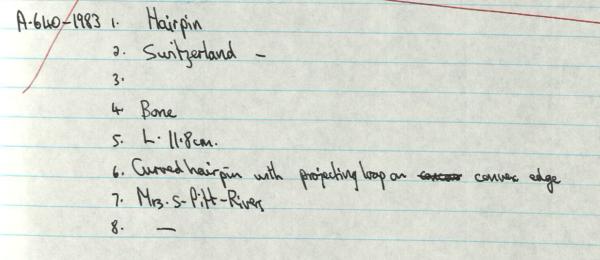 A.640-1983 1. Hairpin
2. Switzerland -
3.
4. Bone
5. L. 11.8cm.
6. Curved hairpin with projecting loop on convex edge
7. Mrs. S. Pitt-Rivers
8. —